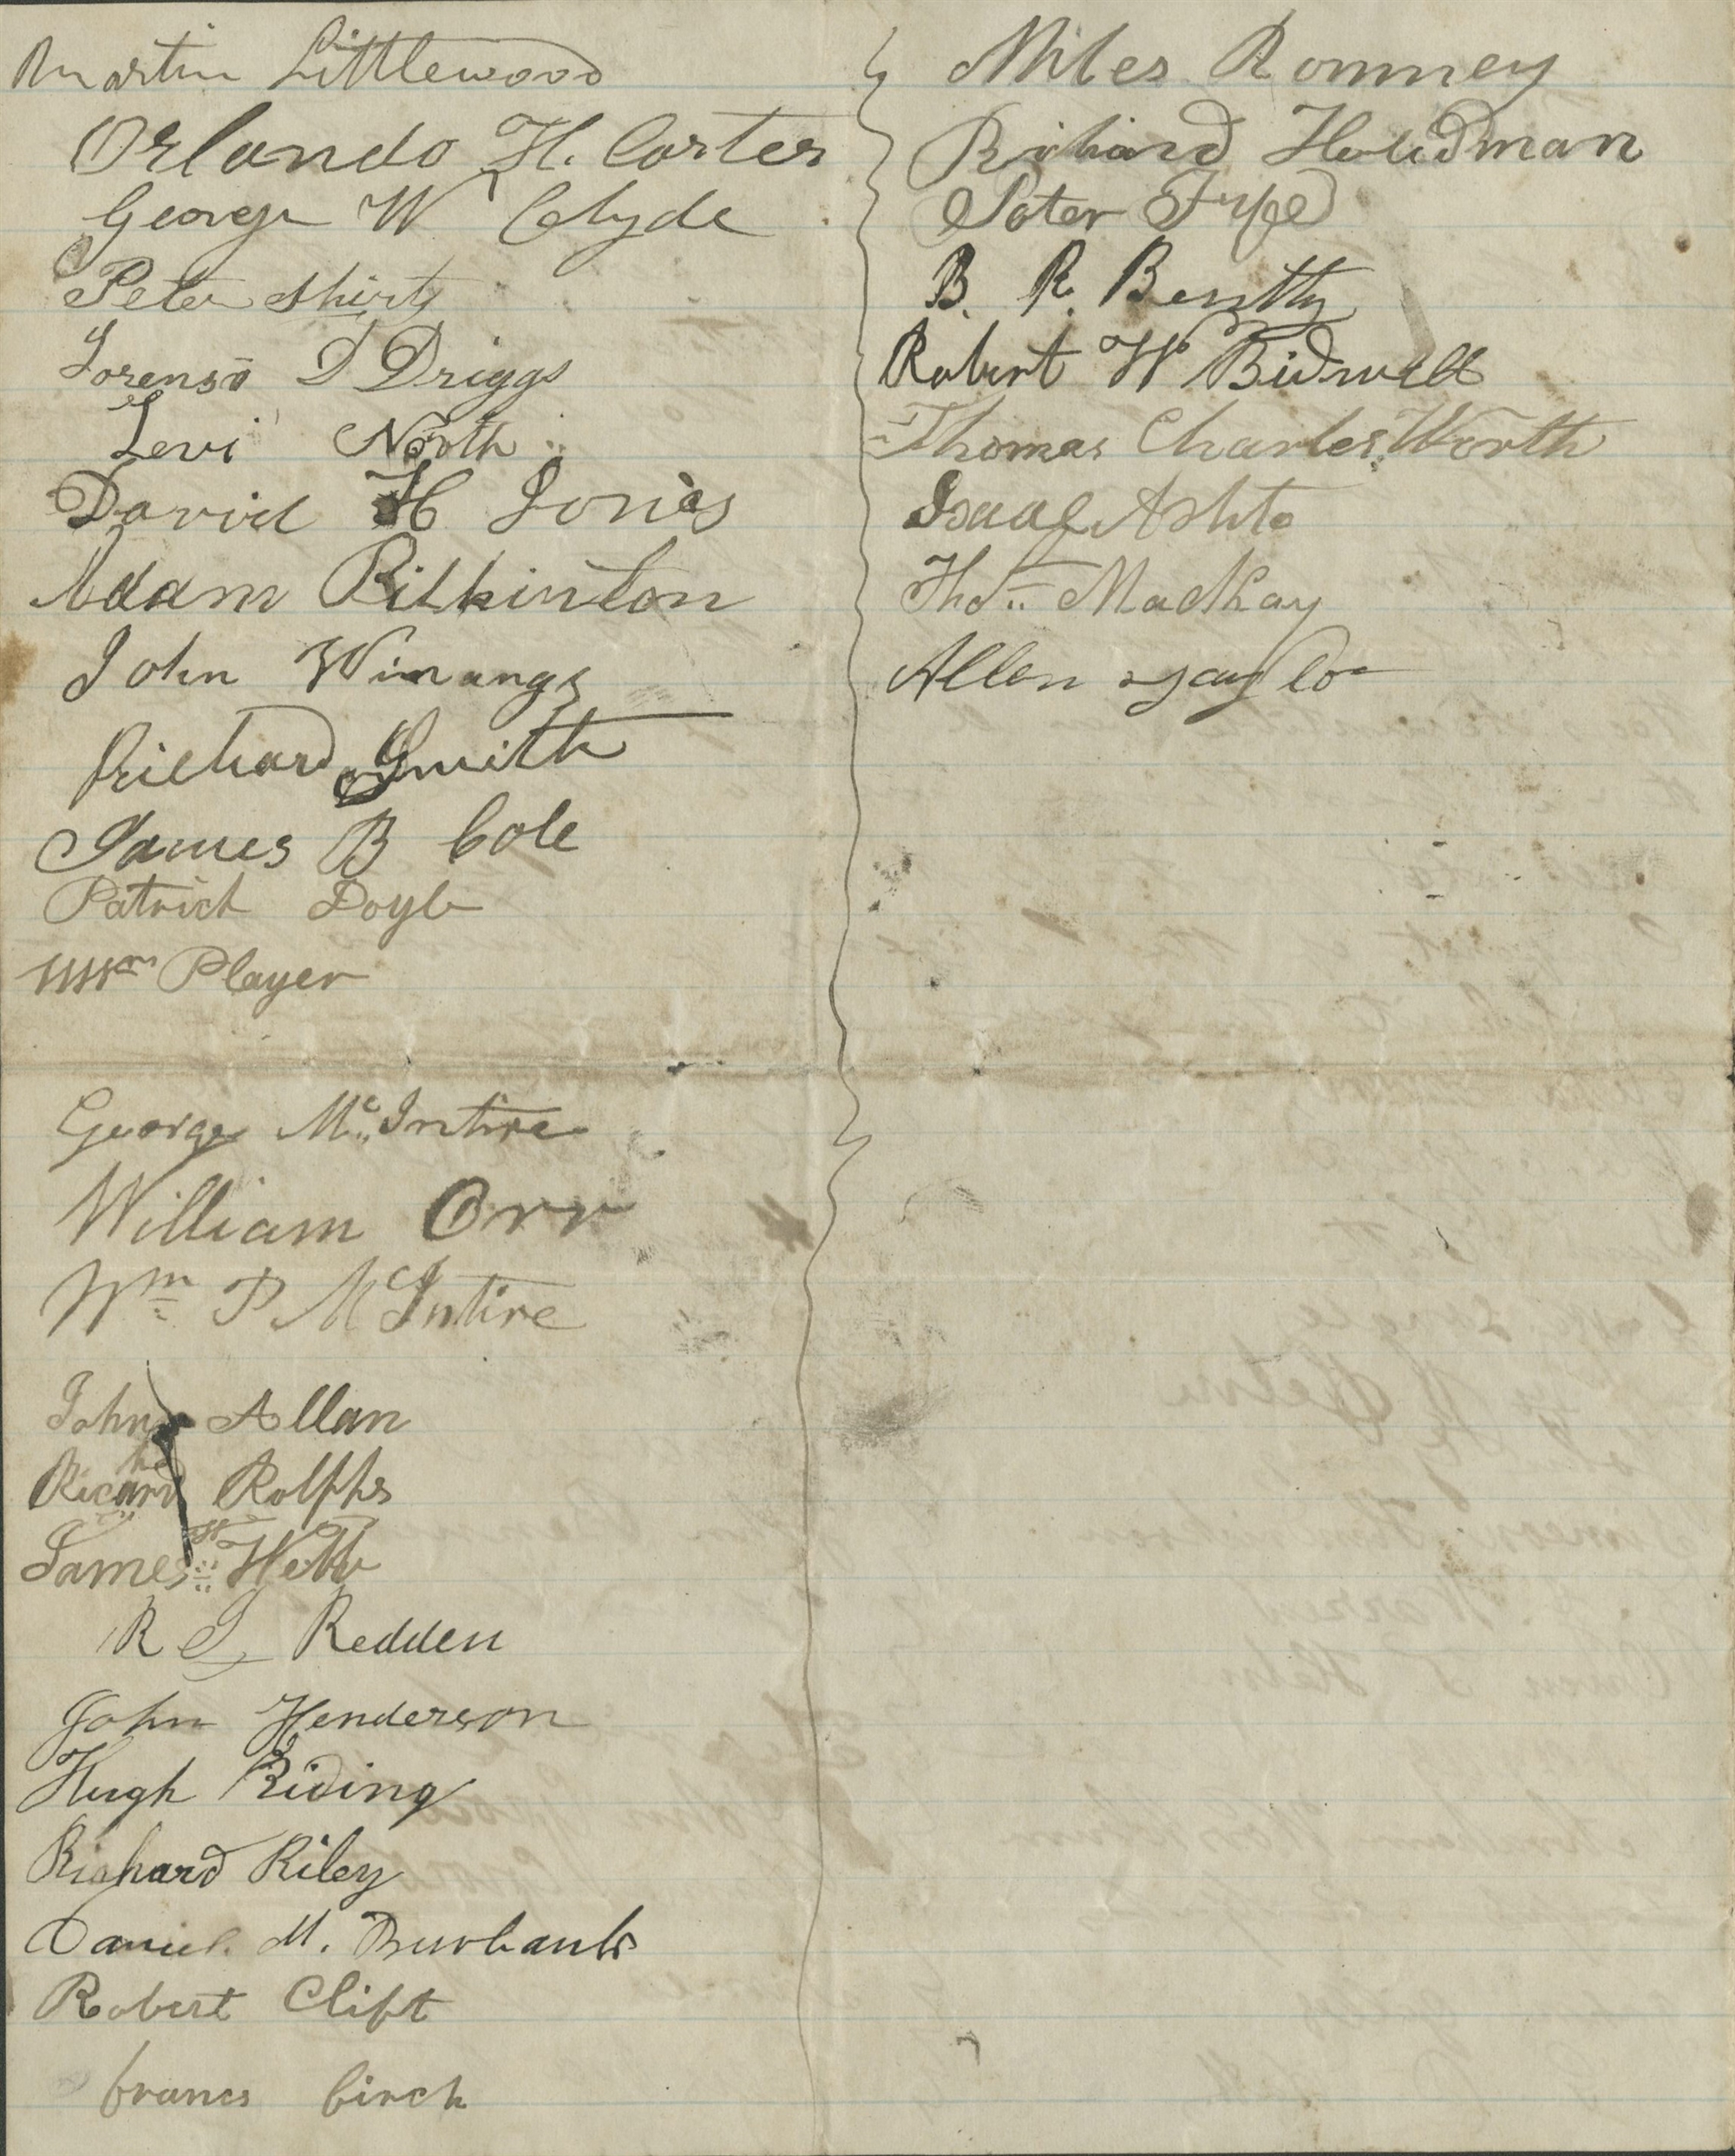 Martin Littlewood
Orlando H. Carter
George W Clyde
Peter Shirts
Lorenso D Driggs
Levi North
David H Jones
Adam Rilkinton
John Winangs
Richard Smith
James B Cole
Patrick Doyle
Wm Player
George McIntire
William Orr
Wm P McIntire
John Allan
Richard Rolphs
James H Webb
R Redden
John Henderson
Hugh Riding
Richard Riley
Daniel M. Burbanks
Robert Clift
francs birch
Miles Romney
Richard Hardman
Peter Fyfe
B. R. Bentty
Robert W Bidwell
Thomas Charles Worth
Isaac Ashto
Thos MacKay
Allen Taylor